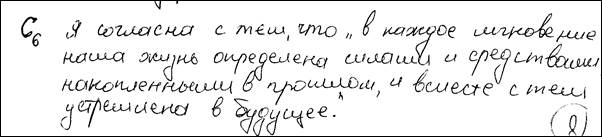 С6 Я согласна с тем, что „в каждое мгновение
наша жизнь определена силами и средствами
накопленными в прошлом, и вместе с тем
устремлена в будущее."